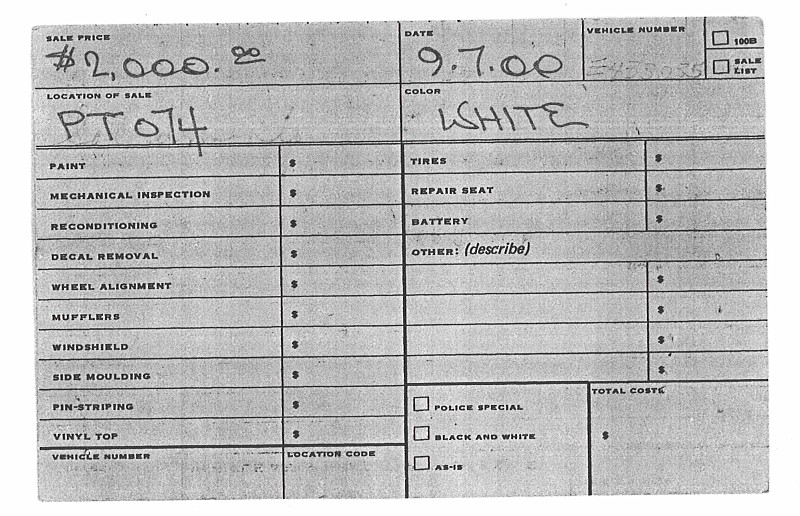 SALE PRICE DATE VEHICLE NUMBER
☐ 100B
$2,000.00 9.7.00
☐ SALE LIST
LOCATION OF SALE COLOR
PT 074 WHITE
PAINT $ TIRES $
MECHANICAL INSPECTION $ REPAIR SEAT $
RECONDITIONING $ BATTERY $
DECAL REMOVAL $ OTHER: (describe)
WHEEL ALIGNMENT $ $
MUFFLERS $ $
WINDSHIELD $ $
SIDE MOULDING $ $
TOTAL COSTS
PIN-STRIPING $ ☐ POLICE SPECIAL
VINYL TOP $ ☐ BLACK AND WHITE $
VEHICLE NUMBER LOCATION CODE
☐ AS-IS